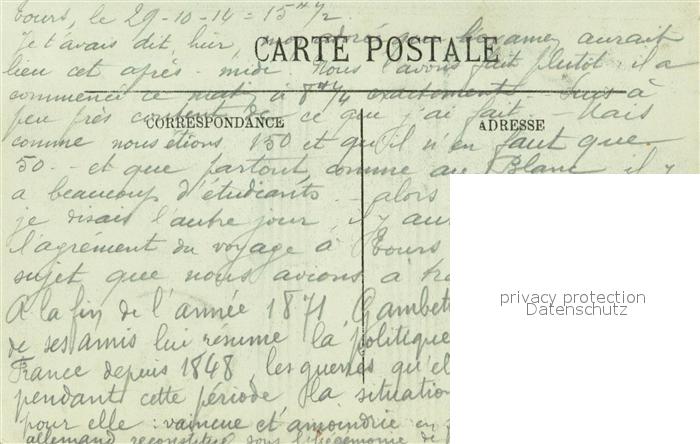 Tours, le 29-10-14 = 15 h 1/2
Je t'avais dit, hier, mon que l'examen aurait
CARTE POSTALE
lieu cet après-midi. Nous l'avons fait plutôt : il a
commencé ce matin à 8 h 1/4 exactement. Suis à
peu près content de ce que j'ai fait - Mais
CORRESPONDANCE
ADRESSE
comme nous étions 150 et qu'il n'en faut que
50 - et que partout, comme au Blanc il y
a beaucoup d'étudiants - alors
je disais l'autre jour, il y aur
l'agrément du voyage à Tours
sujet que nous avions à tra
A la fin de l'année 1871, Gambet
de ses amis lui résume la politique
France depuis 1848, les guerres qu'el
pendant cette période la situation
pour elle : vaincue et amoindrie en
allemand reconstitué sous l'hégémonie de
privacy protection
Datenschutz